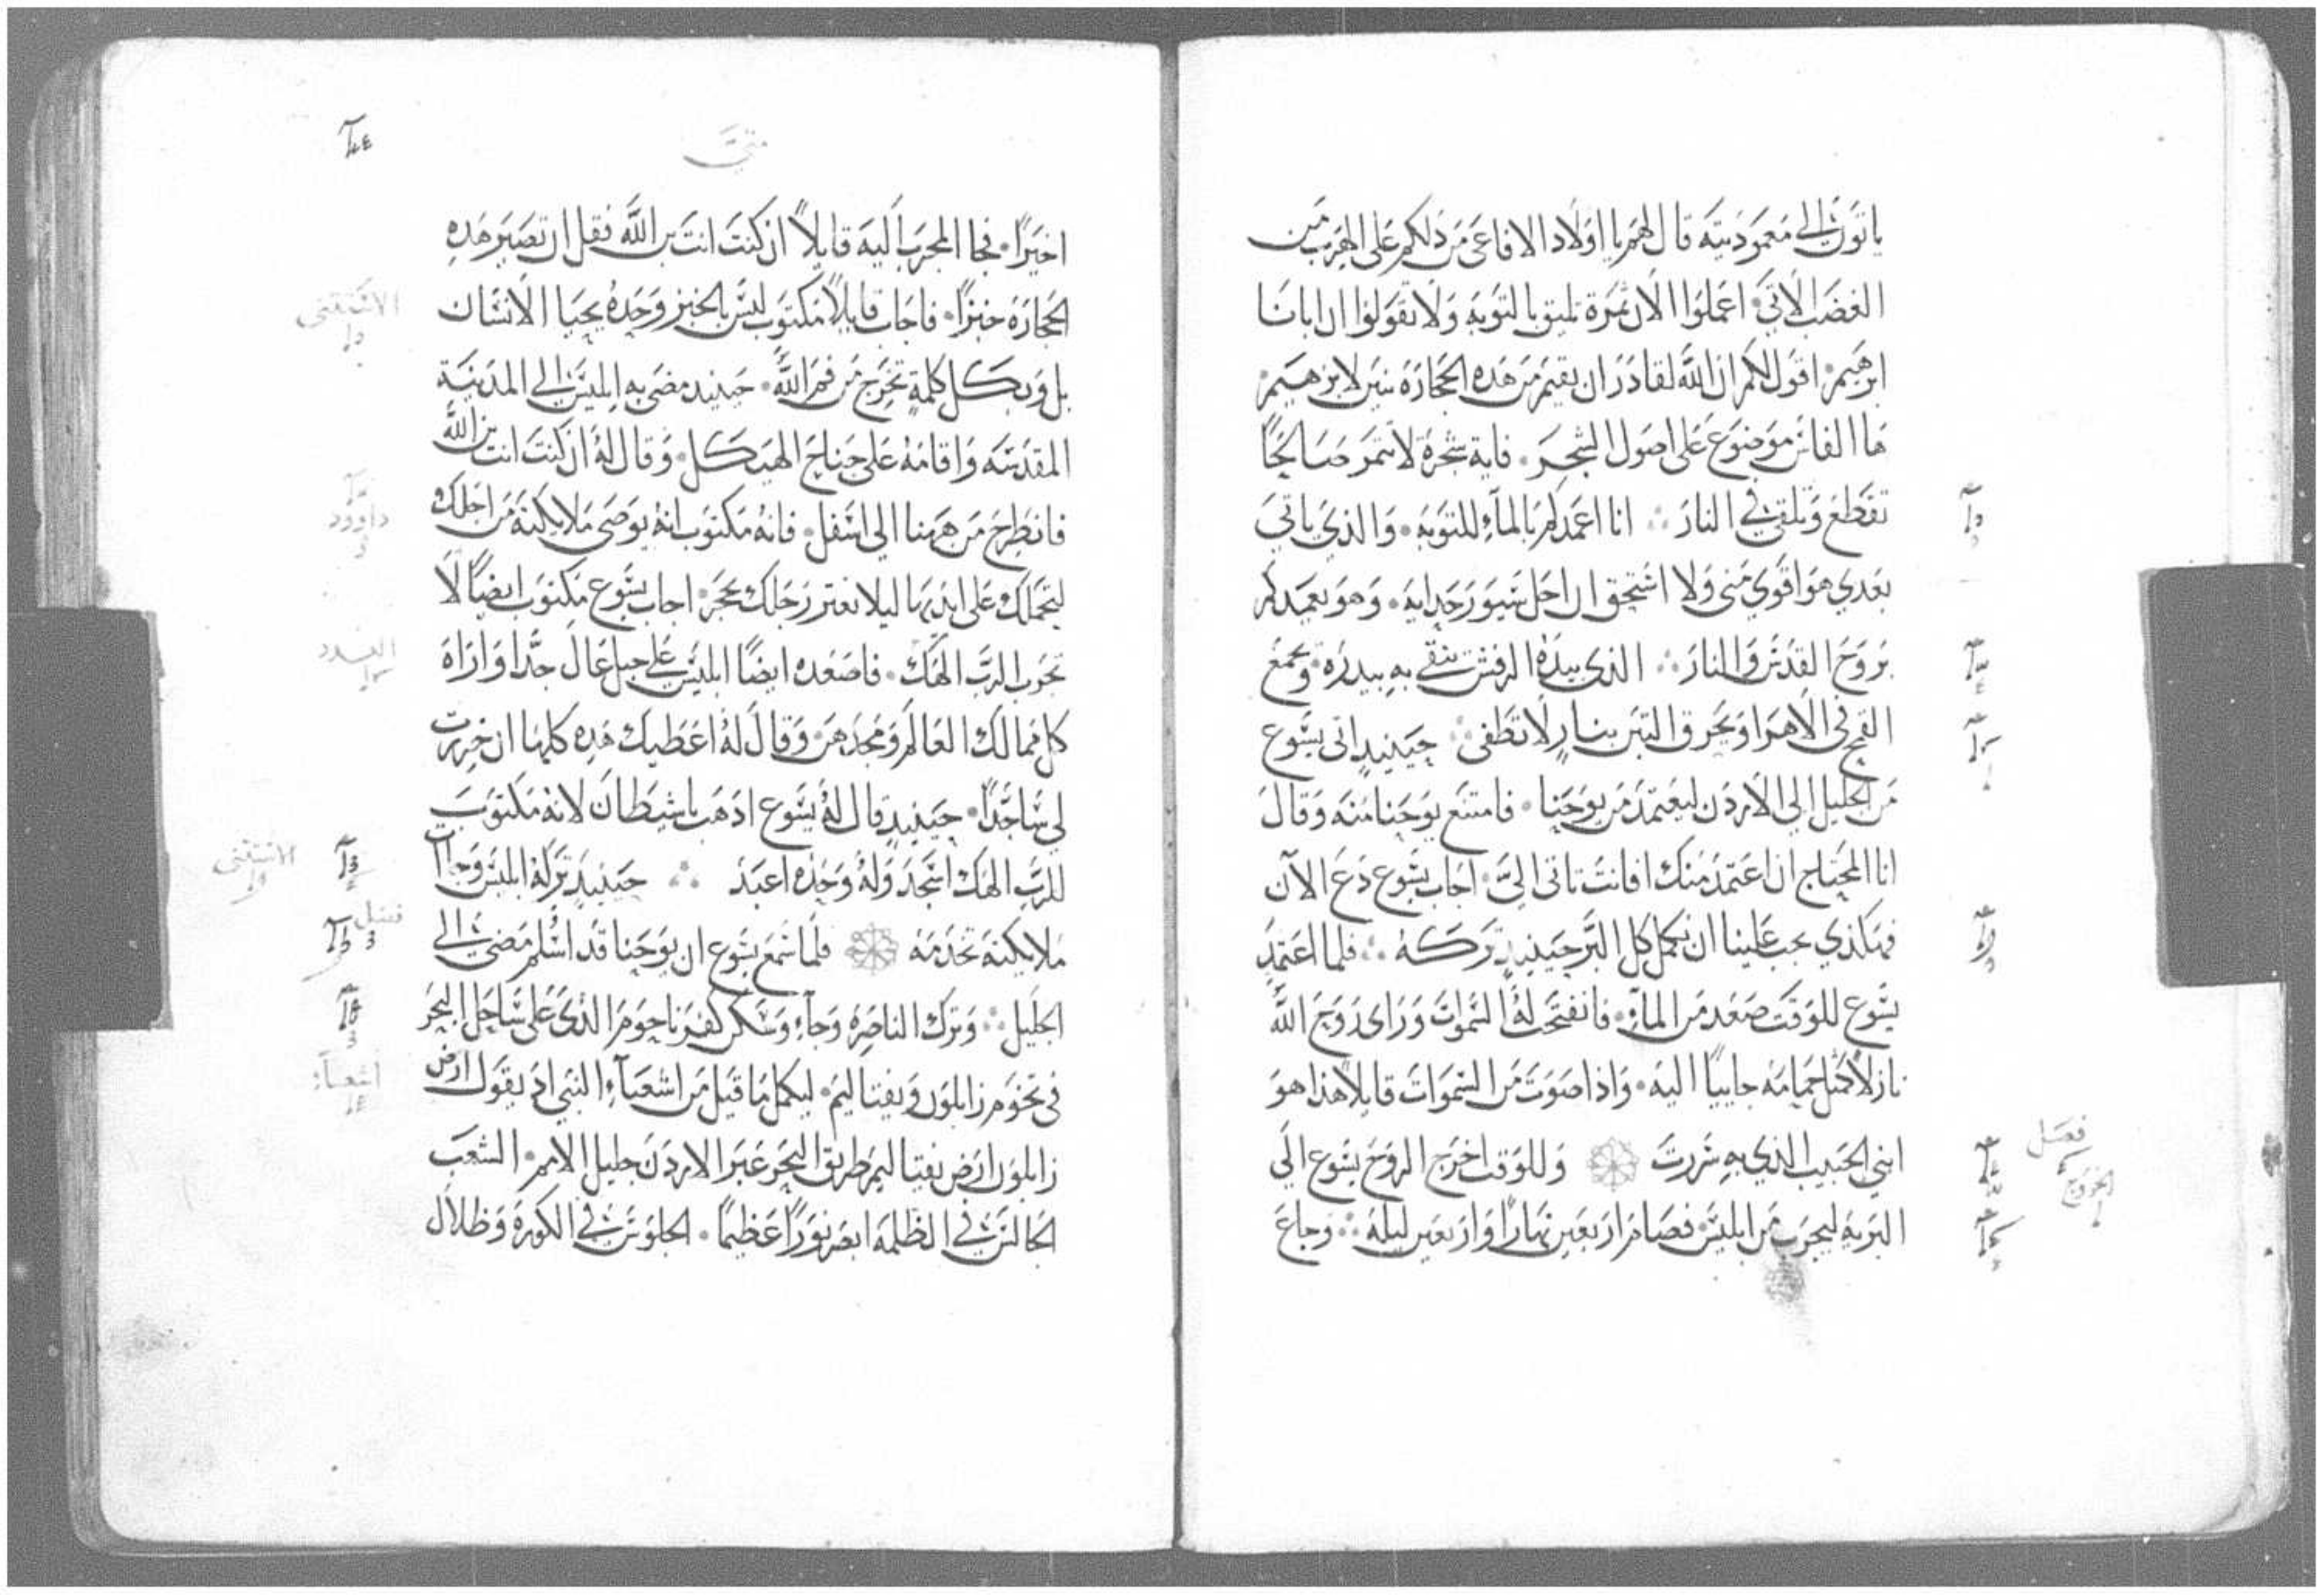 ياتون الى معموديته قال لهم يا اولاد الافاعى من دلكم على الهرب من
الغضب الاتي اعملوا الان ثمرة تليق بالتوبه ولا تقولوا ان ابانا
ابرهيم اقول لكم ان الله لقادر ان يقيم من هذه الحجارة بنين لابرهيم
ها الفاس موضوع على اصول الشجر فاية شجرة لا تثمر صالحا
تقطع وتلقى في النار انا اعمدكم بالماء للتوبه والذي ياتي
بعدي هو اقوي مني ولا استحق ان احل سيور حدايه وهو يعمدكم
بروح القدس والنار الذى بيده الرفش ينقى به بيدره ويجمع
القمح في الاهرا ويحرق التبن بنار لا تطفى حينيد اتى يسوع
من الجليل الي الاردن ليعتمد من يوحنا فامتنع يوحنا منه وقال
انا المحتاج ان اعتمد منك افانت تاتي الىّ اجاب يسوع دع الآن
فهكذي يجب علينا ان نكمل كل البر حينيد تركه فلما اعتمد
يسوع للوقت صعد من الماء فانفتحت له السموات وراى روح الله
نازلا كمثل حمامه جاييا اليه واذا صوت من السموات قايلا هذا هو
ابني الحبيب الذي به سررت وللوقت اخرج الروح يسوع الي
فصل
الخروج
البريه ليجرب من ابليس فصام اربعين نهارا واربعين ليلة وجاع
متى
اخيرا فجا المجرب اليه قايلا ان كنت انت بن الله فقل ان تصير هذه
الحجارة خبزا فاجاب قايلا مكتوب ليس بالخبز وحده يحيا الانسان
الاستثنى
بل وبكل كلمة تخرج من فم الله حينيد مضى به ابليس الى المدينة
المقدسه واقامه على جناح الهيكل وقال له ان كنت انت بن الله
فانطرح من ههنا الى اسفل فانه مكتوب انه يوصى ملايكته من اجلك
داوود
لتحملك على ايديها ليلا تعتر رجلك بحجر اجاب يسوع مكتوب ايضا لا
تجرب الرب الهك فاصعده ايضا ابليس على جبل عال جدا واراه
العدد
كل ممالك العالم ومجدهن وقال له اعطيك هذه كلها ان خررت
لي ساجدا حينيد قال له يسوع اذهب يا شيطان لانه مكتوب
للرب الهك اسجد وله وحده اعبد حينيد تركه ابليس وجات
الاستثنى
ملايكته تخدمه فلما سمع يسوع ان يوحنا قد اسلم مضى الى
فصل
الجليل وترك الناصره وجاء وسكن كفرناحوم الذى على ساحل البحر
في تخوم زابلون ونفتاليم ليكمل ما قيل من اشعياء النبي اذ يقول ارض
اشعياء
زابلون ارض نفتاليم طريق البحر عبر الاردن جليل الامم الشعب
الجالس في الظلمه ابصر نورا عظيما الجلوس في الكورة وظلال